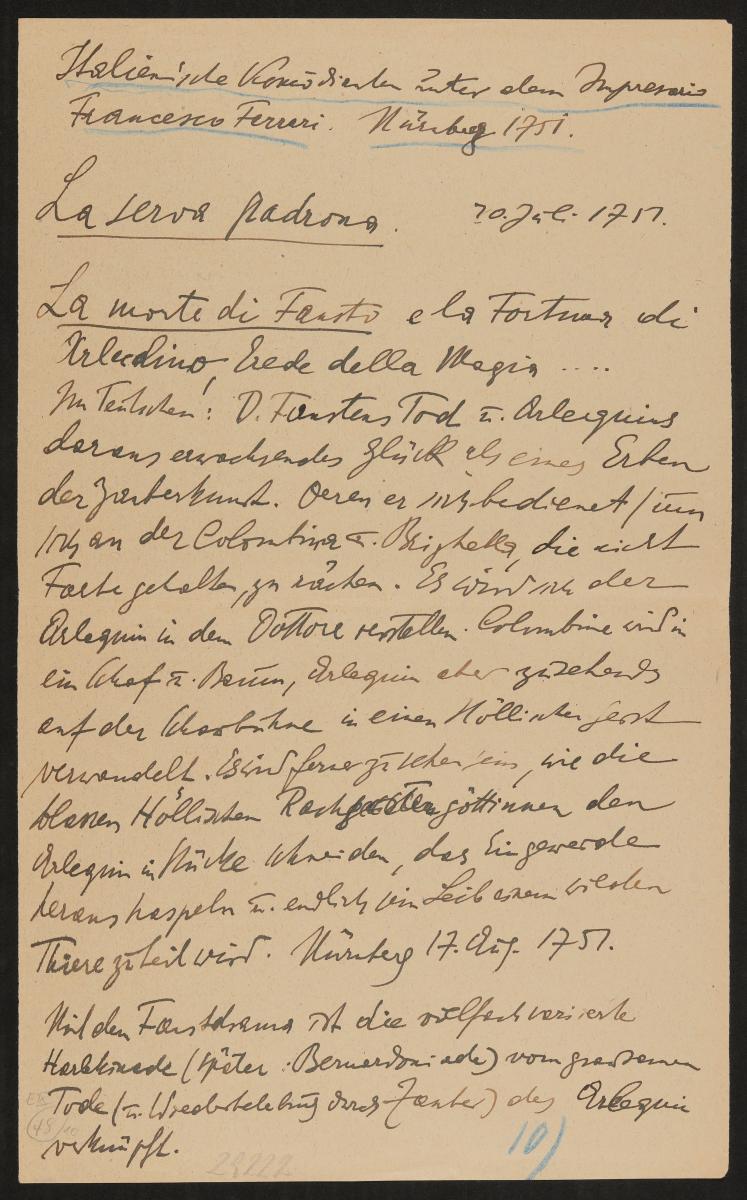 Italienische Komödianten unter dem Impresario
Francesco Ferrari. Nürnberg 1751.
La serva padrona. 20. Juli 1751.
La morte di Fausto e la Fortuna di
Arlechino, Erede della Magia ....
Im Teutschen: D. Faustens Tod u. Arlequins
daraus erwachsendes Glück als eines Erben
der Zauberkunst. Deren er sich bedienet / um
sich an der Colombina u. Brighella, die nicht
Farbe gehalten, zu rächen. Es wird sich der
Arlequin in dem Dottore verstellen. Colombine wird in
ein Schaf u. Baum, Arlequin aber zusehends
auf der Schaubühne in einen Höllischen Geist
verwandelt. Es wird ferner zu sehen sein, wie die
blassen Höllischen Rachgöttinnen den
Arlequin in Stücke schneiden, das Eingeweide
heraus haspeln u. endlich sein Leib einem wilden
Thiere zuteil wird. Nürnberg 17. Aug. 1751.
Mit dem Faustdrama ist die vielfach variierte
Harlekinade (später: Bernardoniade) vom grausamen
Tode (u. Wiederbelebung durch Zauber) des Arlequin
verknüpft.
48/10
29222
10)